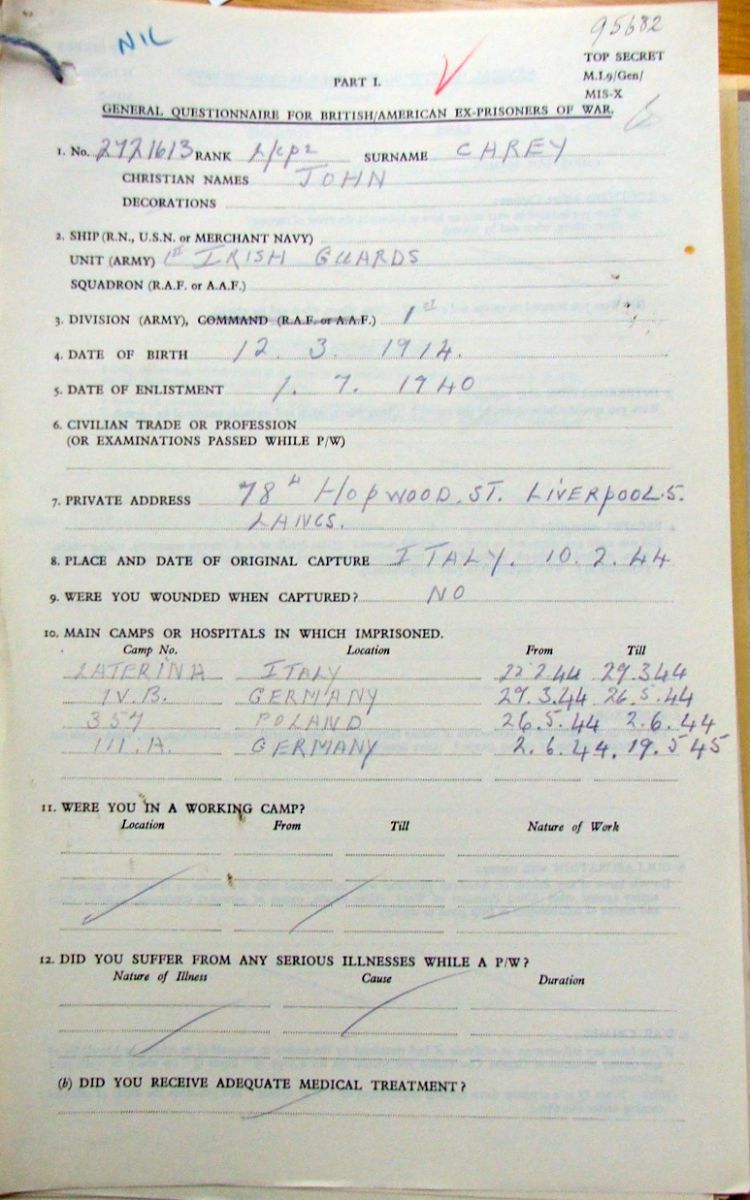 NIL
95682
TOP SECRET
PART I.
M.I.9/Gen/
MIS-X
GENERAL QUESTIONNAIRE FOR BRITISH/AMERICAN EX-PRISONERS OF WAR.
1. No. 2721613 RANK L/cpl SURNAME CAREY
CHRISTIAN NAMES JOHN
DECORATIONS
2. SHIP (R.N., U.S.N. or MERCHANT NAVY)
UNIT (ARMY) 1st IRISH GUARDS
SQUADRON (R.A.F. or A.A.F.)
3. DIVISION (ARMY), COMMAND (R.A.F. or A.A.F.) 1st
4. DATE OF BIRTH 12. 3. 1914.
5. DATE OF ENLISTMENT 1. 7. 1940
6. CIVILIAN TRADE OR PROFESSION
(OR EXAMINATIONS PASSED WHILE P/W)
7. PRIVATE ADDRESS 78 H HOPWOOD. ST. LIVERPOOL.5.
LANCS.
8. PLACE AND DATE OF ORIGINAL CAPTURE ITALY. 10.2.44
9. WERE YOU WOUNDED WHEN CAPTURED? NO
10. MAIN CAMPS OR HOSPITALS IN WHICH IMPRISONED.
Camp No. Location From Till
LATERINA ITALY 22.2.44 29.3.44
IV.B. GERMANY 29.3.44 26.5.44
357 POLAND 26.5.44 2.6.44
III.A. GERMANY 2.6.44. 19.5.45
11. WERE YOU IN A WORKING CAMP?
Location From Till Nature of Work
12. DID YOU SUFFER FROM ANY SERIOUS ILLNESSES WHILE A P/W?
Nature of Illness Cause Duration
(b) DID YOU RECEIVE ADEQUATE MEDICAL TREATMENT?